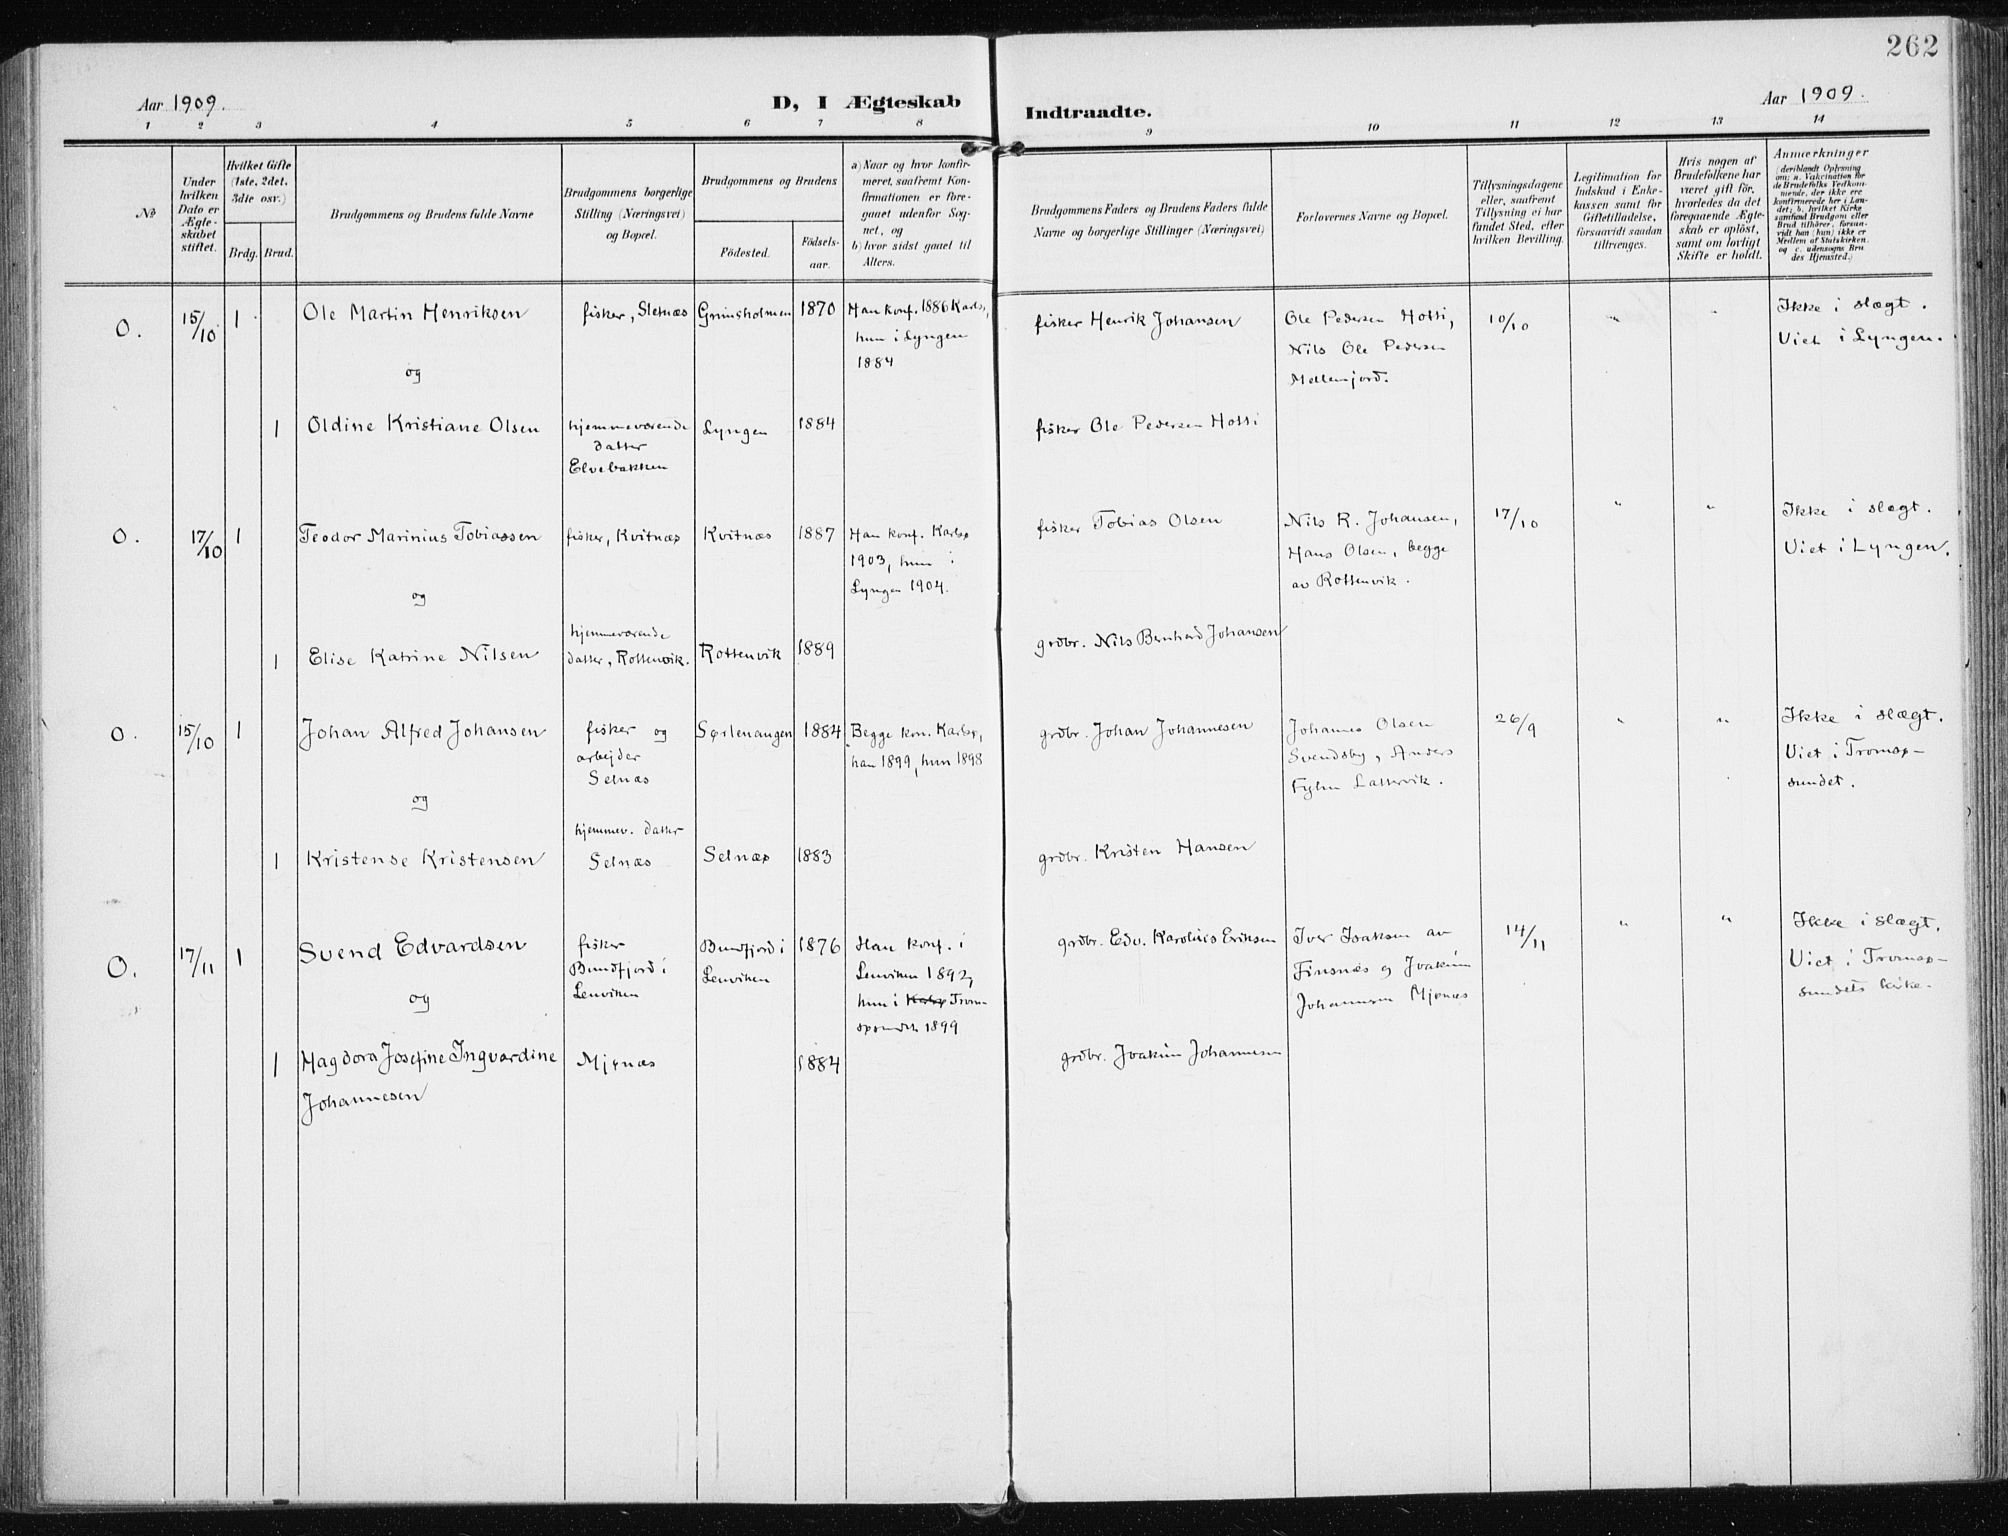 262
Aar 1909.
D, I Ægteskab Indtraadte.
Aar 1909.
1 2 3 4 5 6 7 8 9 10 11 12 13 14
No
Under
hvilken
Dato er
Ægte-
skabet
stiftet.
Hvilket Gifte
(1ste, 2det,
3die osv.)
Brdg. Brud.
Brudgommens og Brudens fulde Navne
Brudgommens borgerlige
Stilling (Næringsvei)
og Bopæl.
Brudgommens og Brudens
Fødested.
Fødsels-
aar.
a) Naar og hvor konfir-
meret, saafremt Kon-
firmationen er fore-
gaaet udenfor Sog-
net, og
b) hvor sidst gaaet til
Alters.
Brudgommens Faders og Brudens Faders fulde
Navne og borgerlige Stillinger (Næringsvei)
Forlovernes Navne og Bopæl.
Tillysningsdagene
eller, saafremt
Tillysning ei har
fundet Sted, efter
hvilken Bevilling.
Legitimation for
Indskud i Enke-
kassen samt for
Giftetilladelse,
forsaavidt saadan
tiltrænges.
Hvis nogen af
Brudefolkene har
været gift før,
hvorledes da det
foregaaende Ægte-
skab er opløst,
samt om lovligt
Skifte er holdt.
Anmærkninger
(deriblandt Oplysning
om: a. Vakcination for
de Brudefolks Vedkom-
mende, der ikke ere
konfirmerede her i Lan-
det; b. hvilket Kirke-
samfund Brudgom eller
Brud tilhører, forsaa-
vidt han (hun) ikke er
Medlem af Statskirken
og c. udensogns Bru
des Hjemsted.)
O. 15/10 1 Ole Martin Henriksen
og
fisker, Sletnæs
Grimsholmen 1870
Han konf. 1886 Karlsø,
hun i Lyngen
1884
fisker Henrik Johansen
Ole Pedersen Hotti,
Nils Ole Pedersen
Mellemjord.
10/10 " "
Ikke i slægt.
Viet i Lyngen.
1 Oldine Kristiane Olsen
hjemmeværende
datter
Elvebakken
Lyngen 1884
fisker Ole Pedersen Hotti
O. 17/10 1 Teodor Marinius Tobiassen
og
fisker, Kvitnæs Kvitnæs 1887
Han konf. Karlsø
1903, hun i
Lyngen 1904.
fisker Tobias Olsen
Nils R. Johansen,
Hans Olsen, begge
av Rottenvik.
17/10 " "
Ikke i slægt.
Viet i Lyngen.
1 Elise Katrine Nilsen
hjemmeværende
datter, Rottenvik.
Rottenvik 1889
grdbr. Nils Bernhard Johansen
O. 15/10 1 Johan Alfred Johansen
og
fisker og
arbejder
Selnæs
Sørlenangen 1884
Begge kon. Karlsø,
han 1899, hun 1898
grdbr. Johan Johannesen
Johannes Olsen
Svendsby, Anders
Fyhn Lattervik.
26/9 " "
Ikke i slægt.
Viet i Tromsø-
sundet.
1 Kristense Kristensen
hjemmev. datter
Selnæs
Selnæs 1883
grdbr. Kristen Hansen
O. 17/11 1 Svend Edvardsen
og
fisker
Bundfjord i
Lenviken
Bundfjord i
Lenviken
1876
Han konf. i
Lenviken 1892,
hun i Karlsø Trom-
søsundet 1899
grdbr. Edv. Karolius Eriksen
Iver Isaksen av
Finsnæs og Joakim
Johannesen Mjønæs
14/11 " "
Ikke i slægt.
Viet i Tromsø-
sundets kirke.
1 Magdora Josefine Ingvardine
Johannesen
Mjønæs 1884
grdbr. Joakim Johannesen